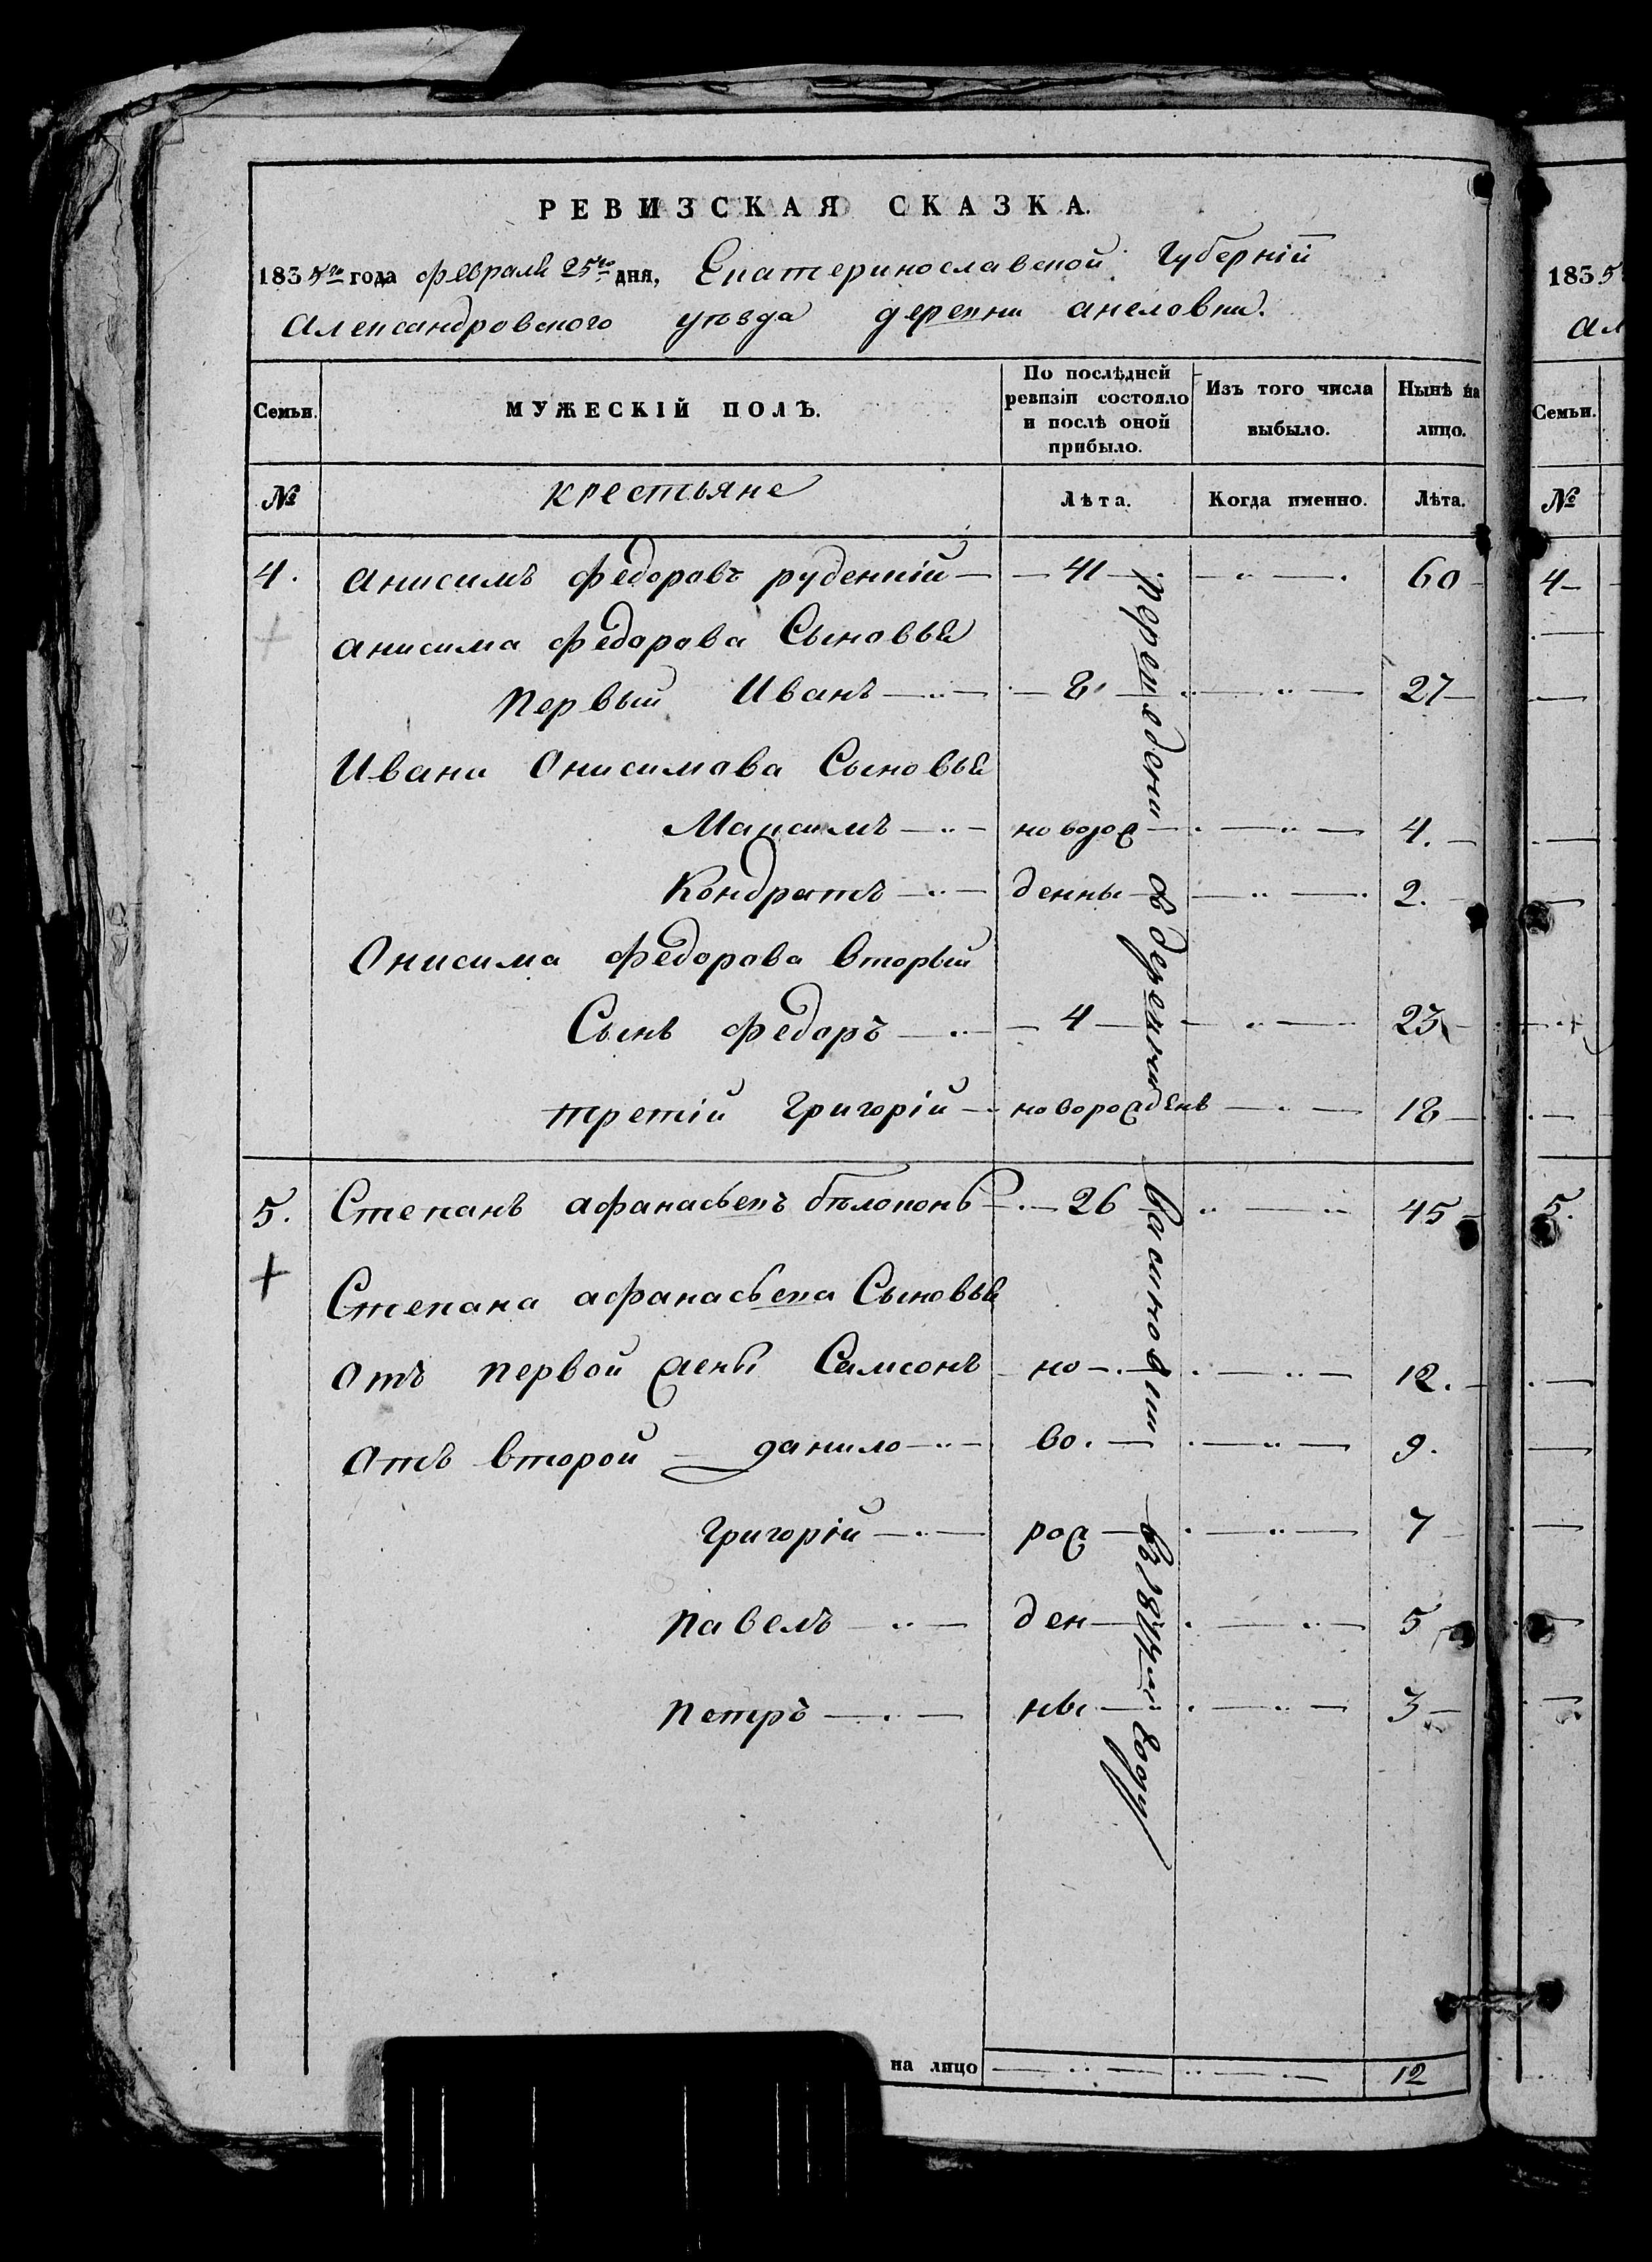 РЕВИЗСКАЯ СКАЗКА.
1835го года февраля 25го дня, Екатеринославской Губерніи
Александровского уезда деревни анеловки.
Семьи.
МУЖЕСКІЙ ПОЛЪ.
По послѣдней ревизіи состояло и послѣ оной прибыло.
Изъ того числа выбыло.
Нынѣ на лицо.
№ крестьяне Лѣта. Когда именно. Лѣта.
4. анисимъ федоровъ руденкій 41 60
анисима федорова Сыновья
первый Иванъ 8 27
Ивана Онисимова Сыновья
Максимъ новорож 4.
Кондратъ денны 2.
Онисима федорова вторый
Сынъ федоръ 4 23
третій Григорій новорожденъ 18
5. Степанъ афанасьевъ бѣлоконь 26 45
Степана афанасьева Сыновья
Отъ первой жены Самсонъ но 12.
Отъ второй данило во. 9.
Григорій рож 7
павелъ ден 5
петръ ны 3
переведени въ деревни году
на лицо 12
1835
Ал
Семьи.
№
4
5.